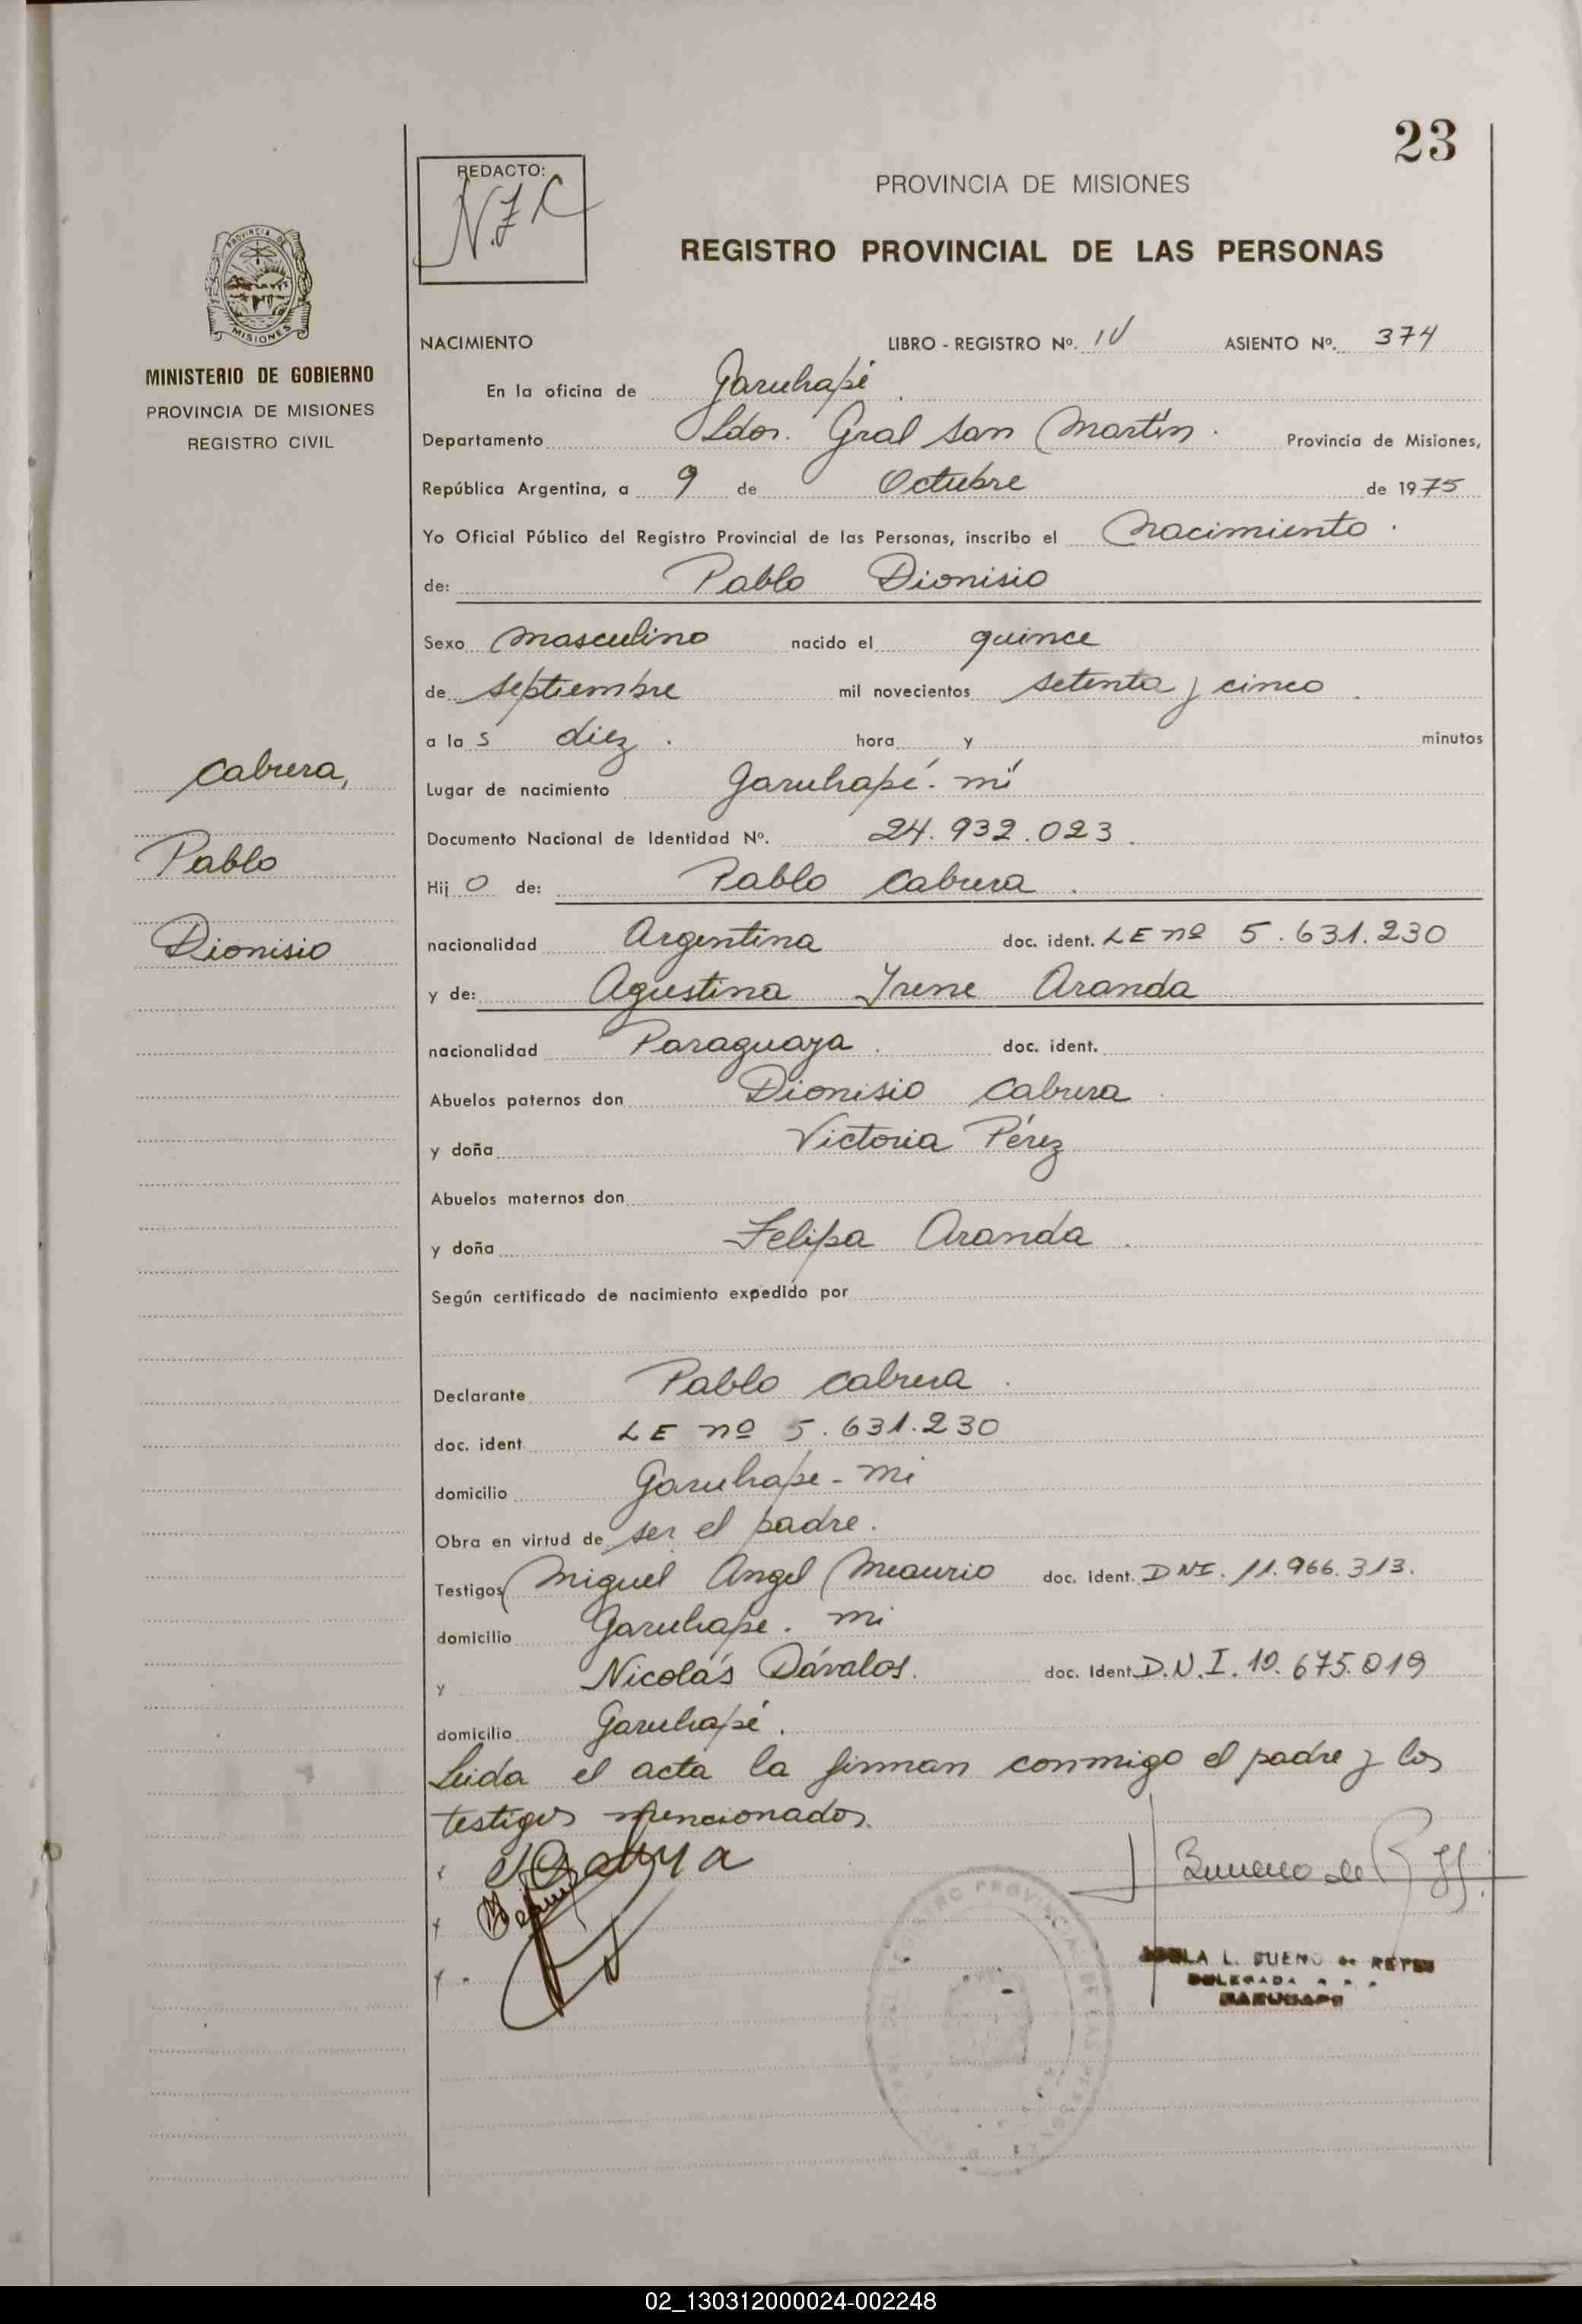 23
REDACTO:
PROVINCIA DE MISIONES
REGISTRO PROVINCIAL DE LAS PERSONAS
PROVINCIA DE
MISIONES
MINISTERIO DE GOBIERNO
PROVINCIA DE MISIONES
REGISTRO CIVIL
Cabrera,
Pablo
Dionisio
NACIMIENTO LIBRO - REGISTRO Nº. IV ASIENTO Nº. 374
En la oficina de Garuhapé
Departamento Ldor. Gral San Martín. Provincia de Misiones,
República Argentina, a 9 de Octubre de 1975
Yo Oficial Público del Registro Provincial de las Personas, inscribo el Nacimiento.
de: Pablo Dionisio
Sexo masculino nacido el quince
de septiembre mil novecientos setenta y cinco
a las diez. hora y minutos
Lugar de nacimiento Garuhapé. mí
Documento Nacional de Identidad Nº. 24.932.023.
Hijo de: Pablo Cabrera.
nacionalidad Argentina doc. ident. LE nº 5.631.230
y de: Agustina Irene Aranda
nacionalidad Paraguaya. doc. ident.
Abuelos paternos don Dionisio Cabrera
y doña Victoria Pérez
Abuelos maternos don
y doña Felipa Aranda.
Según certificado de nacimiento expedido por
Declarante Pablo Cabrera.
doc. ident. LE nº 5.631.230
domicilio Garuhape-mi
Obra en virtud de ser el padre.
Testigos Miguel Angel Meaurio doc. ident. DNI. 11.966.313.
domicilio Garuhape. mi
y Nicolás Dávalos. doc. Ident. D.N.I. 10.675.019
domicilio Garuhapé.
Leida el acta la firman conmigo el padre y los
testigos mencionados.
L. BUENO de REYES
DELEGADA
GARUHAPE
02_130312000024-002248